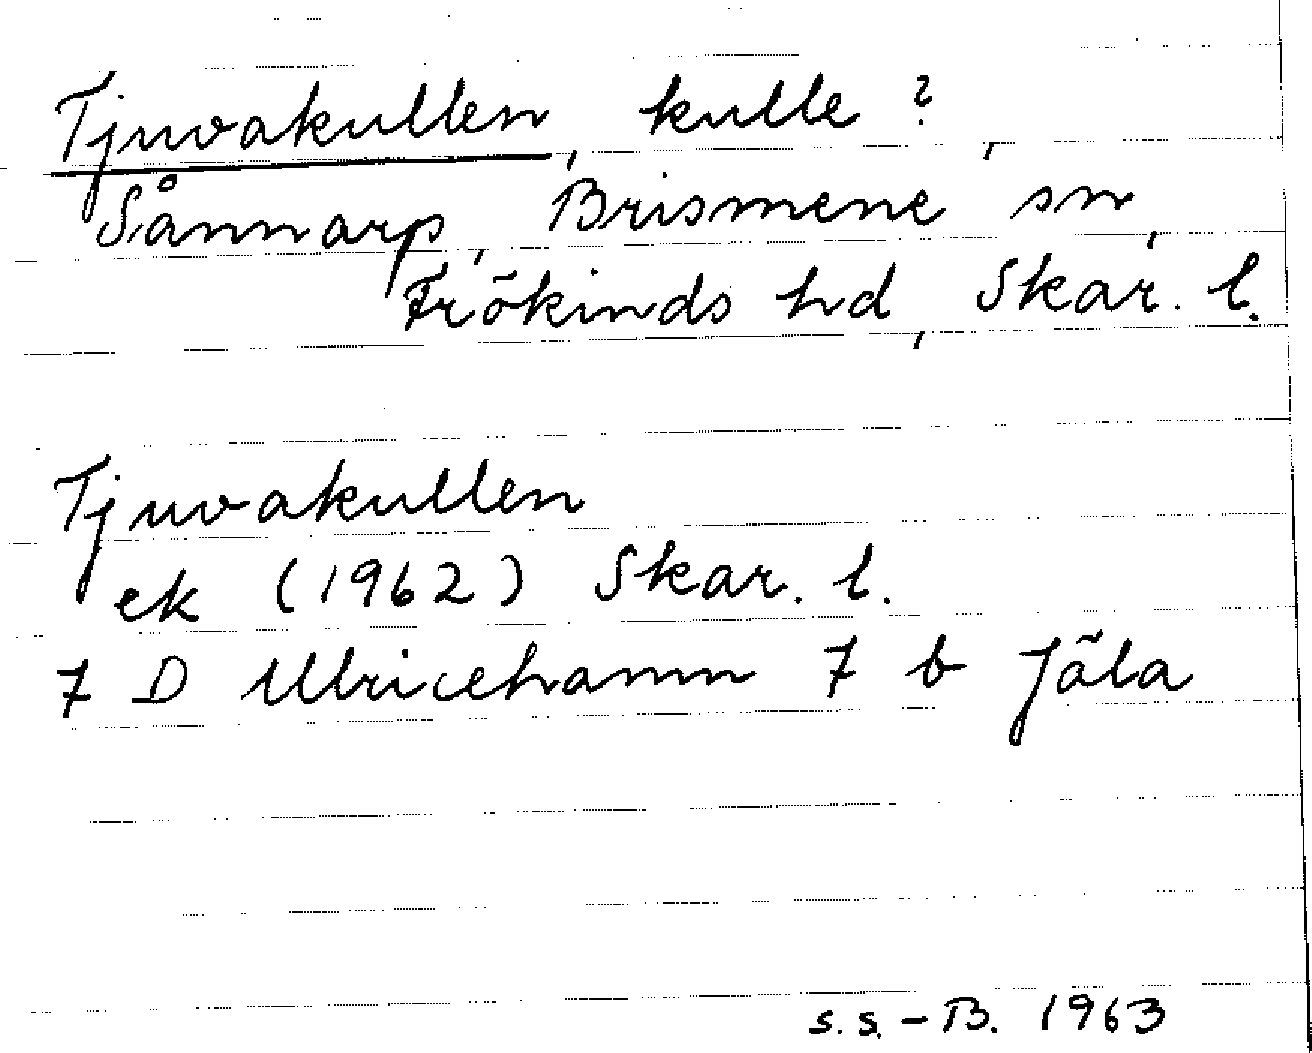 Tjuvakullen, kulle?,
Sånnarp, Brismene sn,
Frökinds hd, Skar. l.
Tjuvakullen
ek (1962) Skar. l.
7 D Ulricehamn 7 b Jäla
S.S.-B. 1963